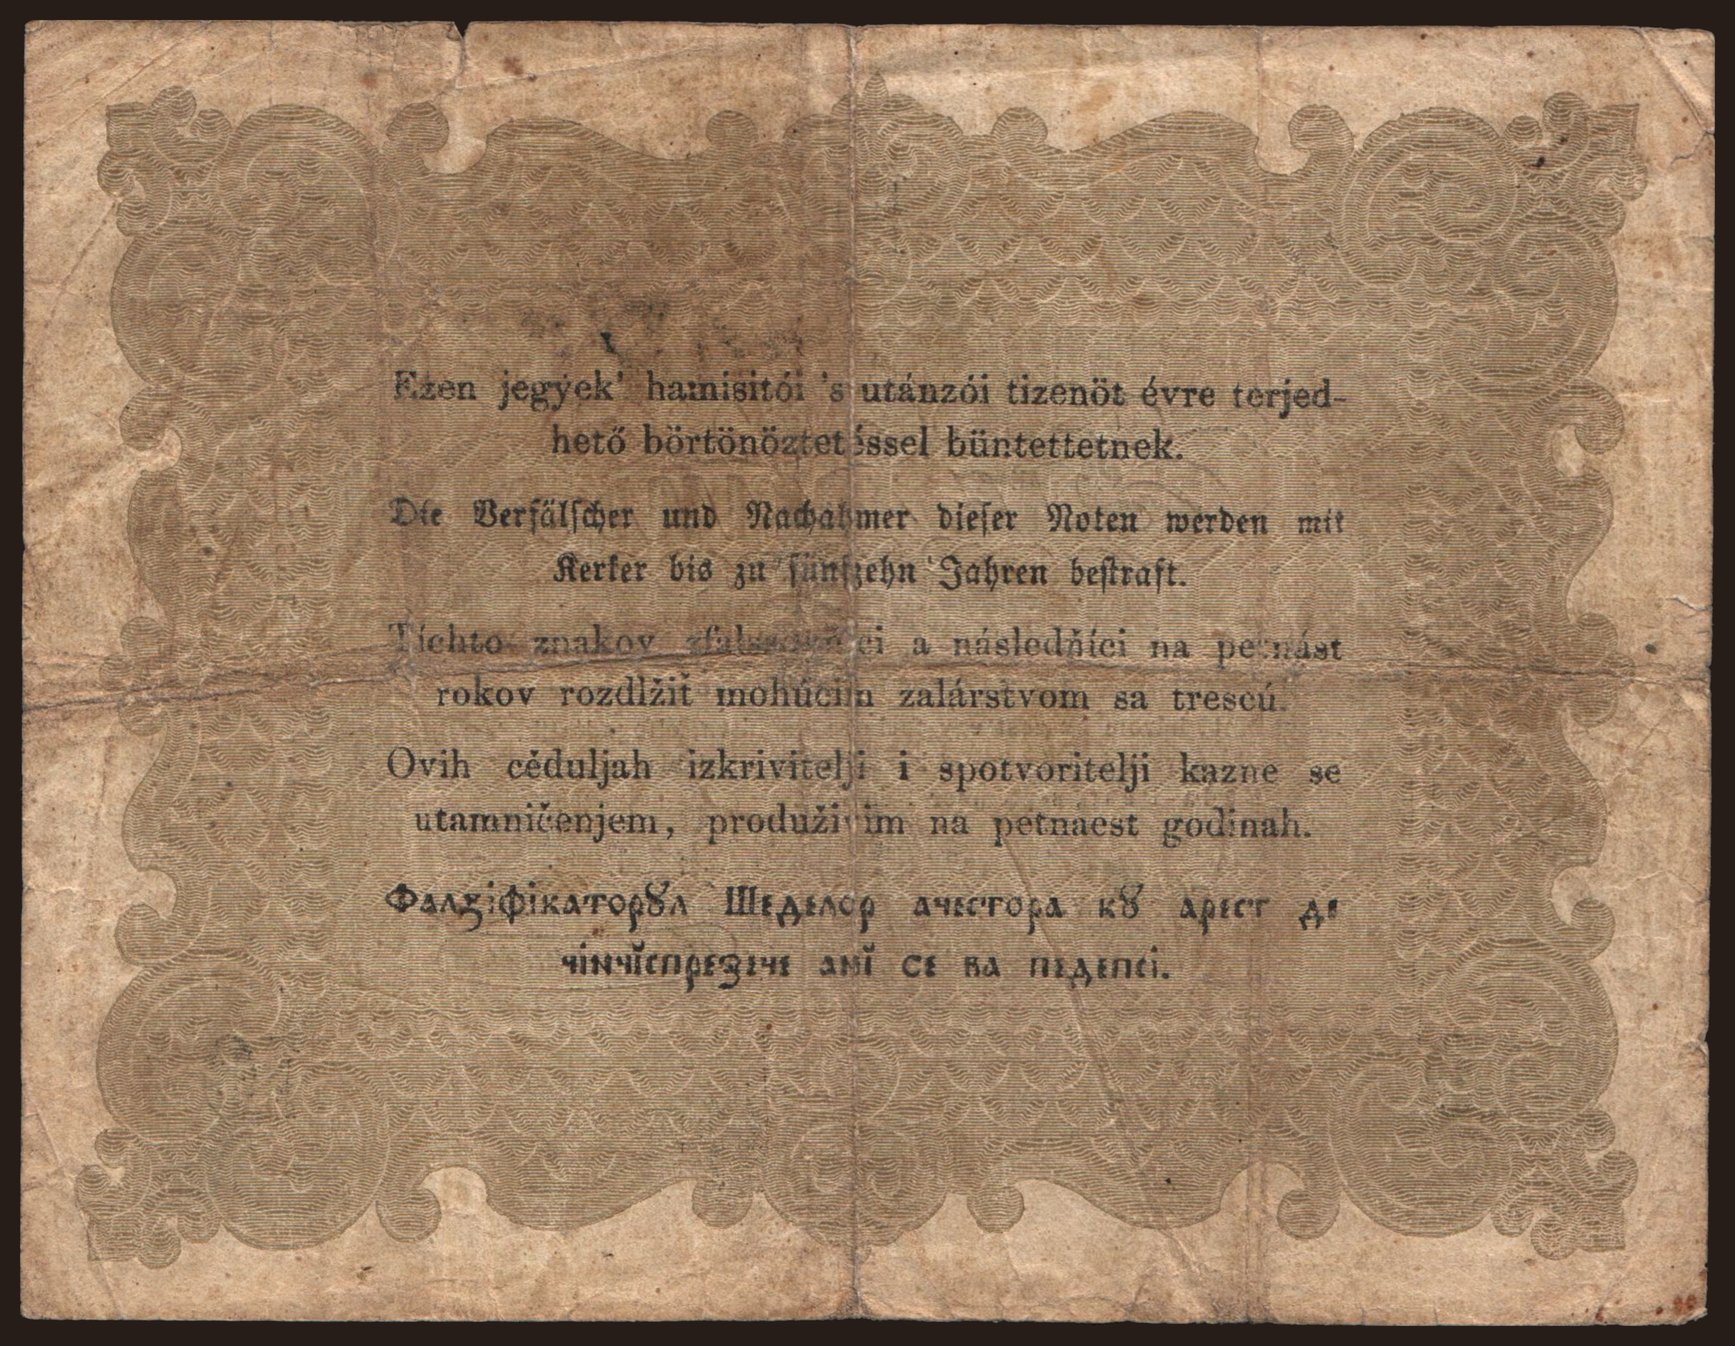 Ezen jegyek' hamisitói 's utánzói tizenöt évre terjed-
hető börtönöztetéssel büntettetnek.
Die Verfälscher und Nachahmer dieser Noten werden mit
Kerker bis zu fünfzehn Jahren bestraft.
Tíchto znakov a následňíci na petnást
rokov rozdlžiť mohúcim zalárstvom sa trescú.
Ovih céduljah izkrivitelji i spotvoritelji kazne se
utamničenjem, produživim na petnaest godinah.
Фалꙁіфікаторꙋл Шєдєлор ачєстора кꙋ арєст дє
чінчĭспрєꙁєчє анĭ сє ва пєдєпсі.